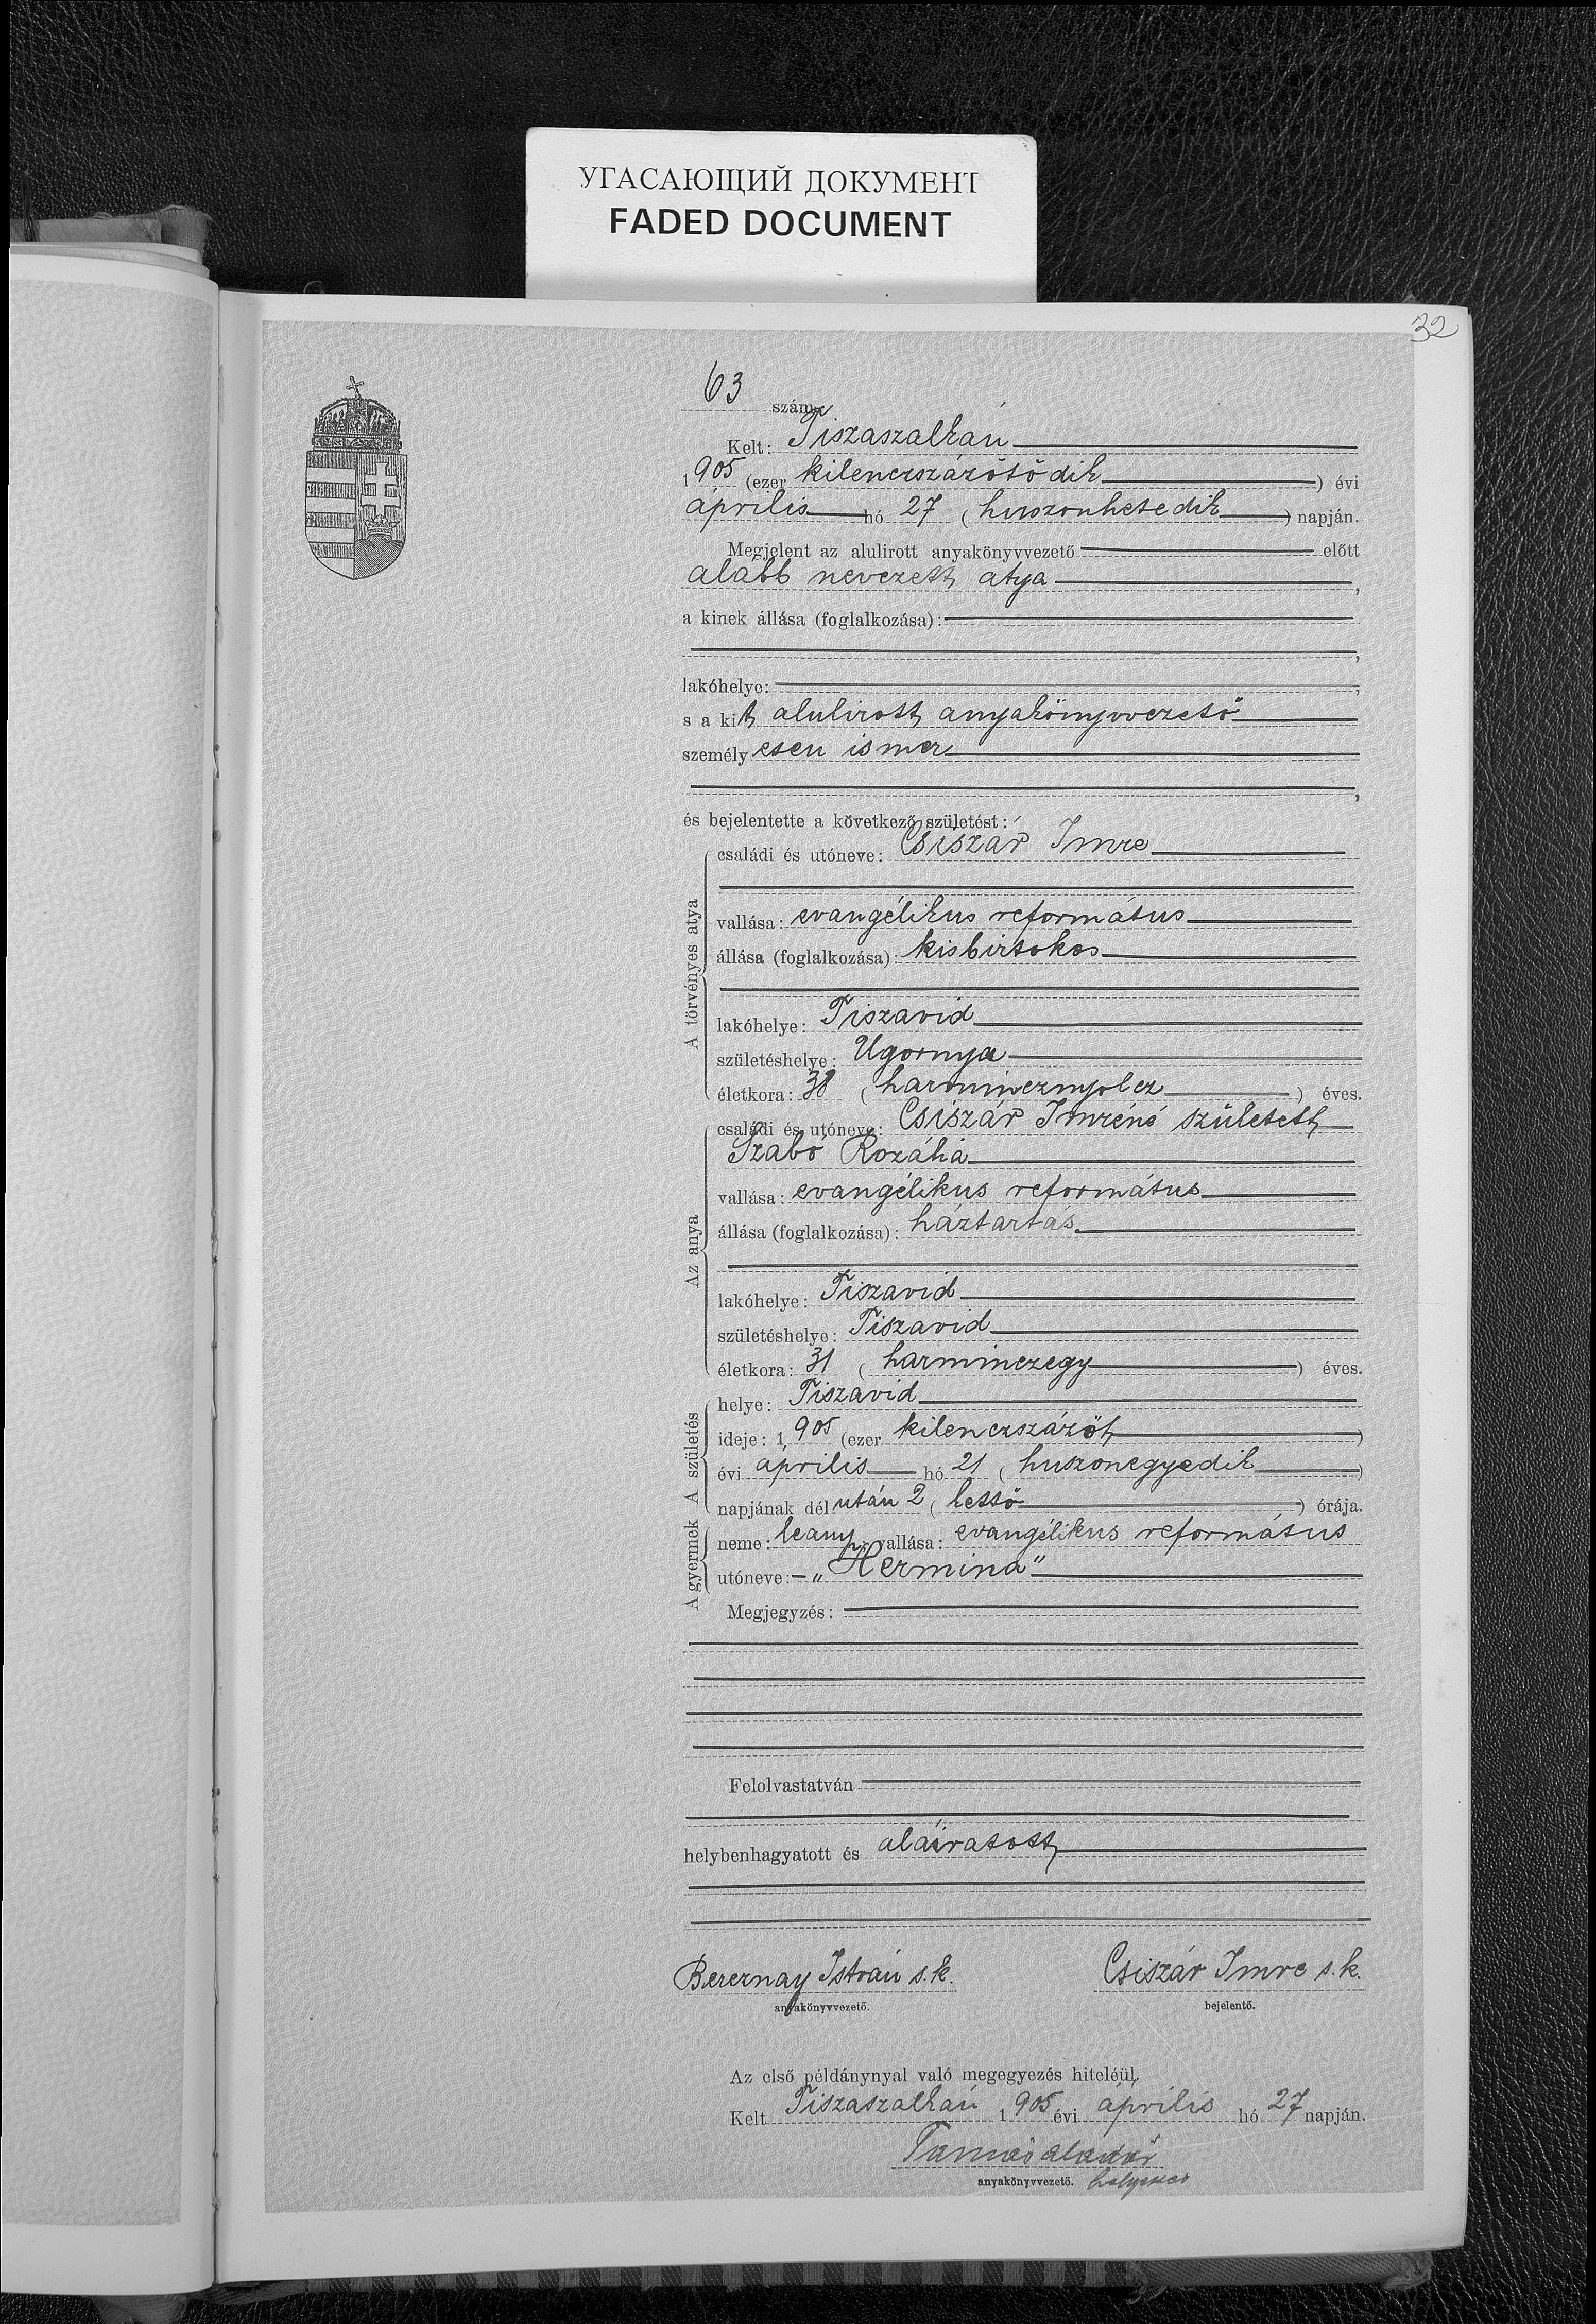 УГАСАЮЩИЙ ДОКУМЕНТ
FADED DOCUMENT
32
63 szám.
Kelt: Tiszaszalkán
1905 (ezer kilenczszázötödik) évi
április hó 27 (huszonhetedik) napján.
Megjelent az alulirott anyakönyvvezető előtt
alább nevezett atya,
a kinek állása (foglalkozása):
,
lakóhelye: ,
s a kit alulirott anyakönyvvezető
személyesen ismer
,
és bejelentette a következő születést:
A törvényes atya
családi és utóneve: Csiszár Imre
vallása: evangélikus református
állása (foglalkozása): kisbirtokos
lakóhelye: Tiszavid
születéshelye: Ugornya
életkora: 38 (harmincznyolcz) éves.
Az anya
családi és utóneve: Csiszár Imréné született
Szabó Rozália
vallása: evangélikus református
állása (foglalkozása): háztartás
lakóhelye: Tiszavid
születéshelye: Tiszavid
életkora: 31 (harminczegy) éves.
A születés
helye: Tiszavid
ideje: 1905 (ezer kilenczszázöt)
évi április hó 21 (huszonegyedik)
napjának délután 2 (kettő) órája.
A gyermek
neme: leány, vallása: evangélikus református
utóneve: – „Hermina"
Megjegyzés:
Felolvastatván
helybenhagyatott és aláiratott
Berernay István s. k. Csiszár Imre s. k.
anyakönyvvezető. bejelentő.
Az első példánynyal való megegyezés hiteléül.
Kelt Tiszaszalkán 1905 évi április hó 27 napján.
Tamás Aladár
anyakönyvvezető. helyettes